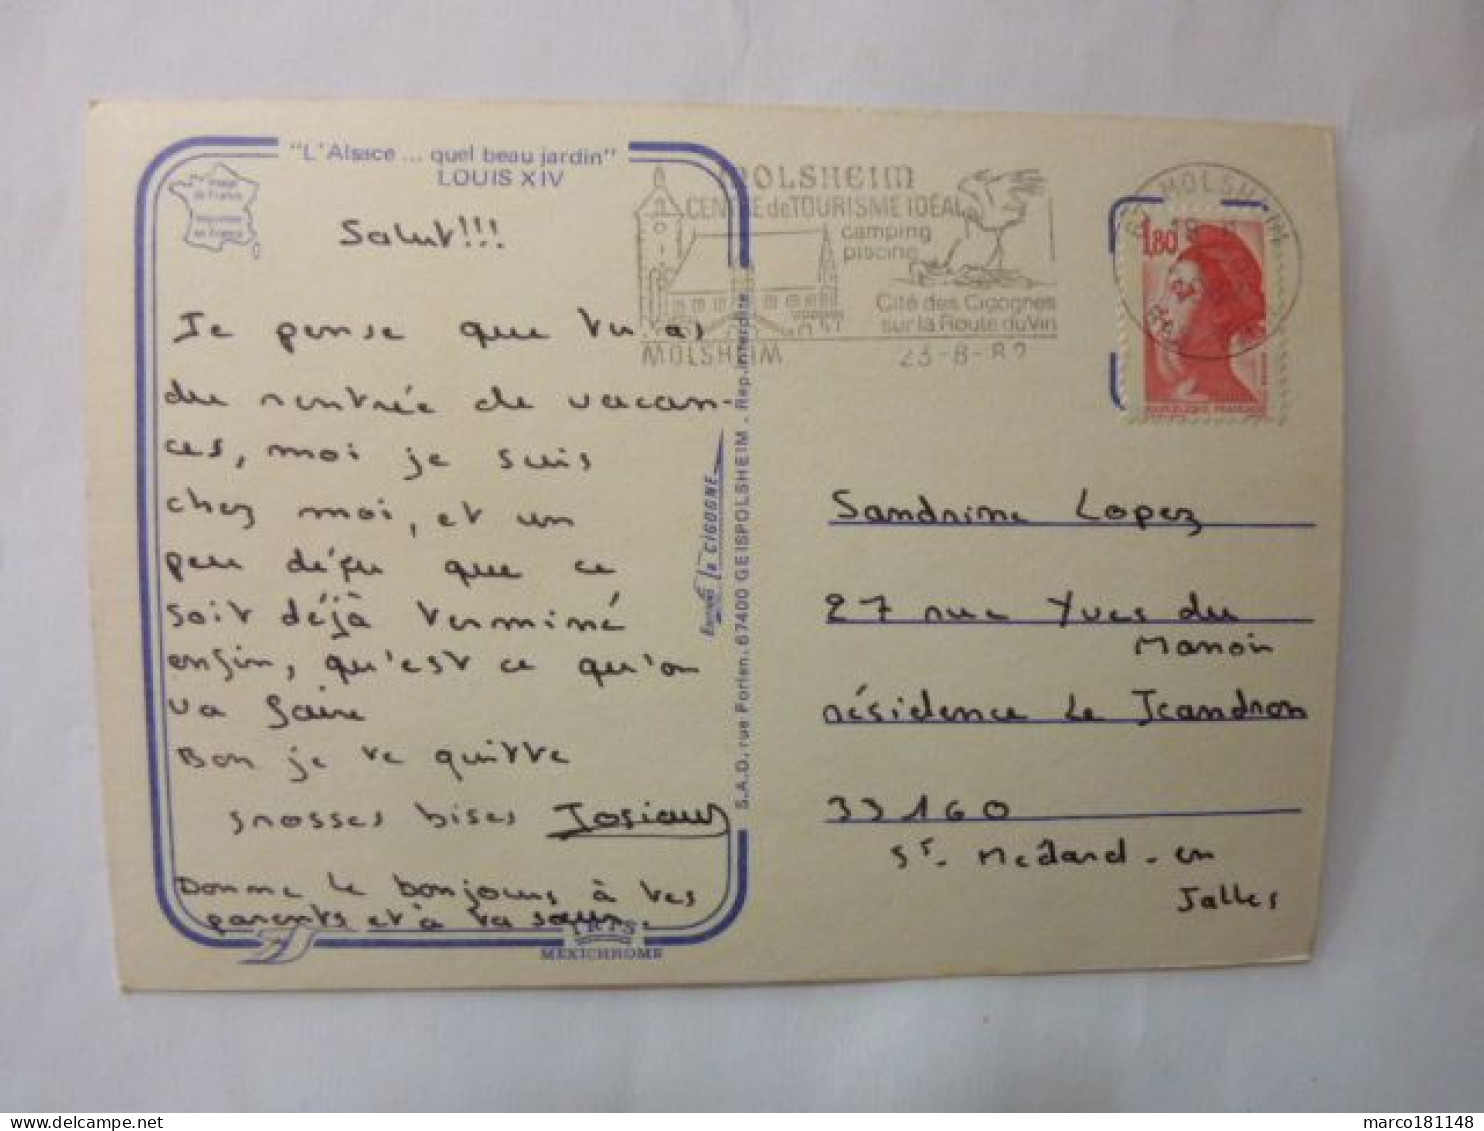 "L'Alsace ... quel beau jardin"
LOUIS XIV
Image
de France
Imprimée
en France
Salut!!!
Je pense que tu as
du rentrée de vacan-
ces, moi je suis
chez moi, et un
peu déçu que ce
soit déjà terminé
enfin, qu'est ce qu'on
va faire
Bon je te quitte
grosses bises Josiane
Donne le bonjour à tes
parents et à ta sœur.
MEXICHROME
Editions La CIGOGNE
S.A.D. rue Forlen. 67400 GEISPOLSHEIM . Rep. interdite
MOLSHEIM
CENTRE de TOURISME IDÉAL
camping
piscine
Cité des Cigognes
sur la Route du Vin
MOLSHEIM
23-8-82
MOLSHEIM
1,80
REPUBLIQUE FRANÇAISE
Sandrine Lopez
27 rue Yves du
Manoir
résidence Le Jeandron
33160
St. Médard-en
Jalles
marco181148